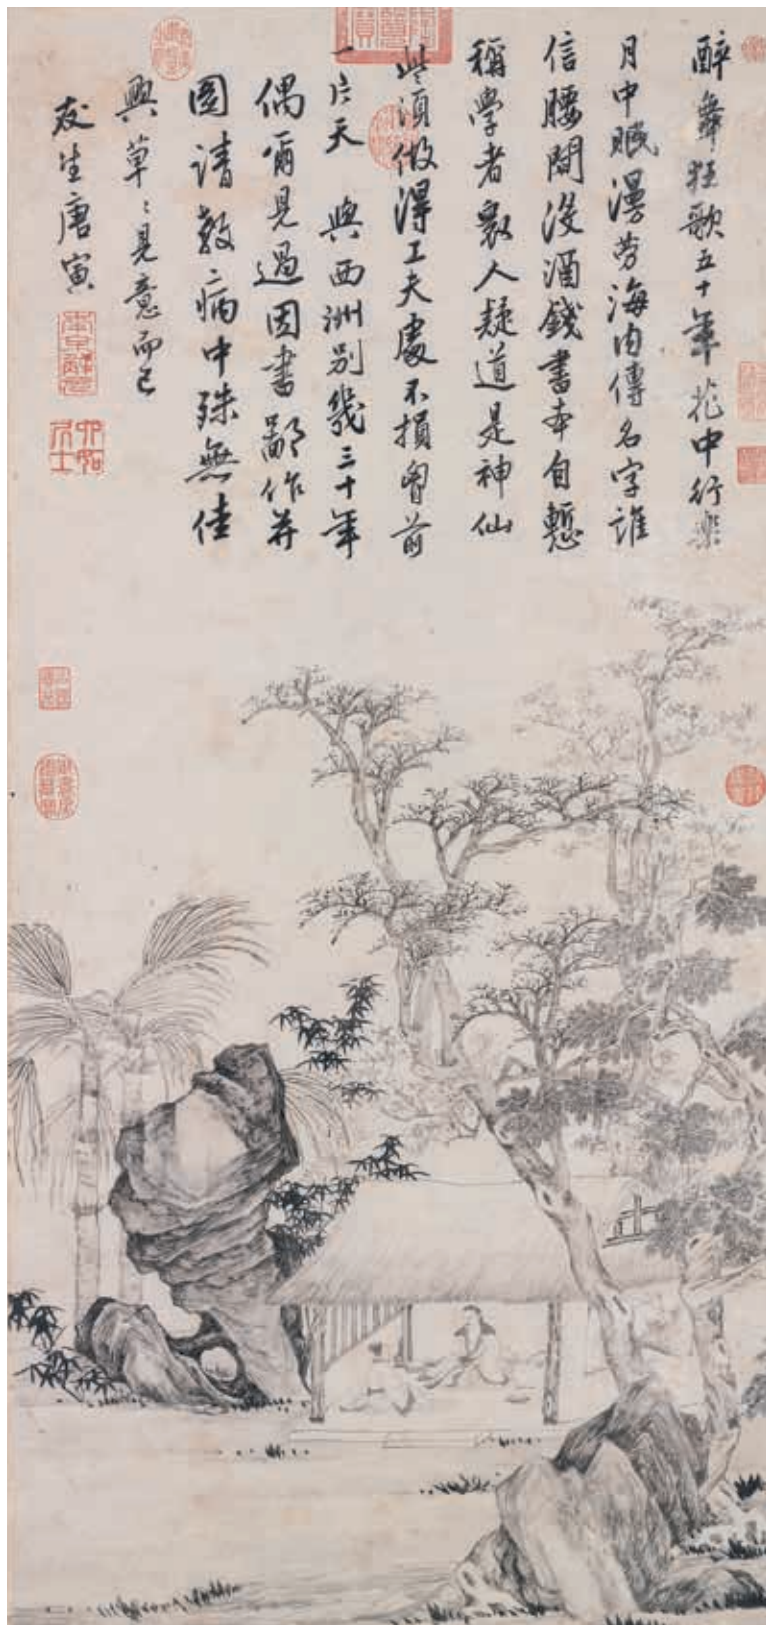 醉舞狂歌五十年花中行樂
月中眠漫勞海內傳名字誰
信腰間沒酒錢書本自慙
稱學者衆人疑道是神仙
些須做得工夫處不損胷前
一片天 與西洲別幾三十年
偶爾見過因書鄙作并
圖請教病中殊無佳
興草〻見意而已
友生唐寅
南京解元
六如居士